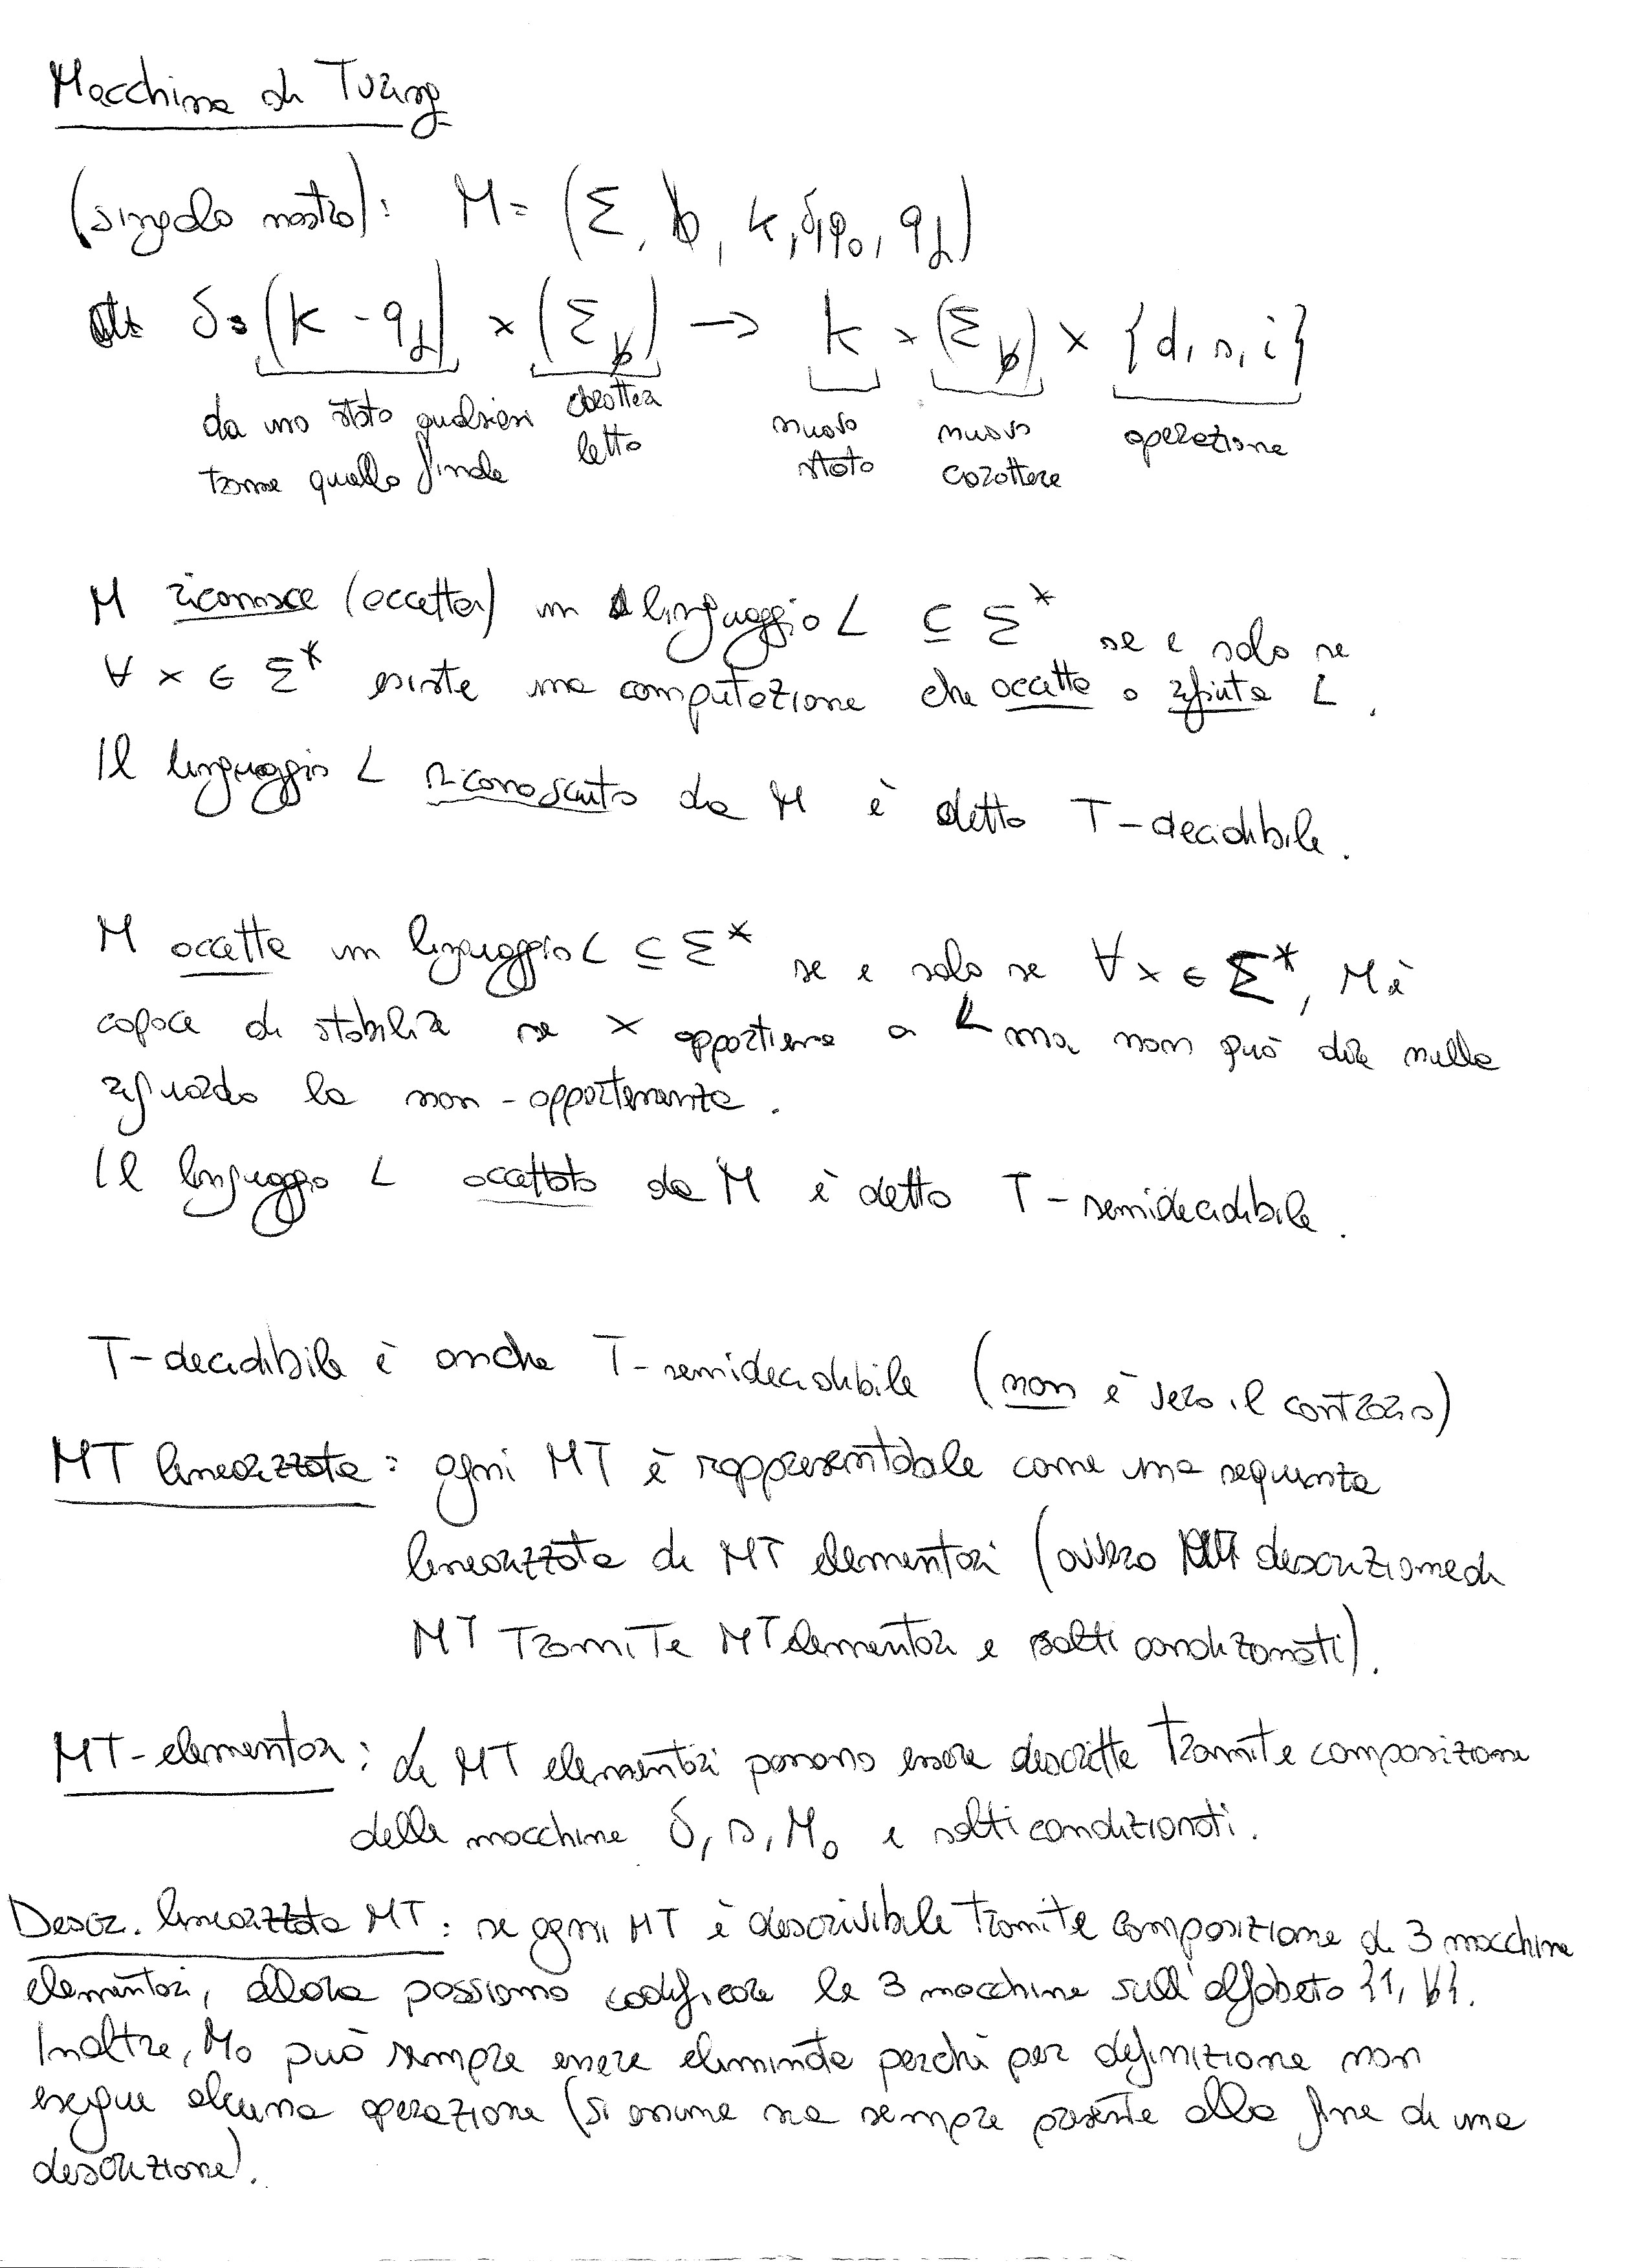 Macchina di Turing
(singolo nastro): M = (Σ, ƀ, K, δ, q₀, q_f)
δ: (K - q_f) × (Σ_ƀ) → K × (Σ_ƀ) × {d, s, i}
da uno stato qualsiasi carattere nuovo nuovo operazione
tranne quello finale letto stato carattere
M riconosce (accetta) un linguaggio L ⊆ Σ* se e solo se
∀ x ∈ Σ* esiste una computazione che accetta o rifiuta L.
Il linguaggio L riconosciuto da M è detto T-decidibile.
M accetta un linguaggio L ⊆ Σ* se e solo se ∀ x ∈ Σ*, M è
capace di stabilire se x appartiene a L ma non può dire nulla
riguardo la non-appartenenza.
Il linguaggio L accettato da M è detto T-semidecidibile.
T-decidibile è anche T-semidecidibile (non è vero il contrario)
MT linearizzata: ogni MT è rappresentabile come una sequenza
linearizzata di MT elementari (ovvero descrizione di
MT tramite MT elementari e salti condizionati).
MT-elementari: le MT elementari possono essere descritte tramite composizione
delle macchine δ, s, M₀ e salti condizionati.
Descr. linearizzata MT: se ogni MT è descrivibile tramite composizione di 3 macchine
elementari, allora possiamo codificare le 3 macchine sull'alfabeto {1, ƀ}.
Inoltre, M₀ può sempre essere eliminata perchè per definizione non
esegue alcuna operazione (si assume sia sempre presente alla fine di una
descrizione).